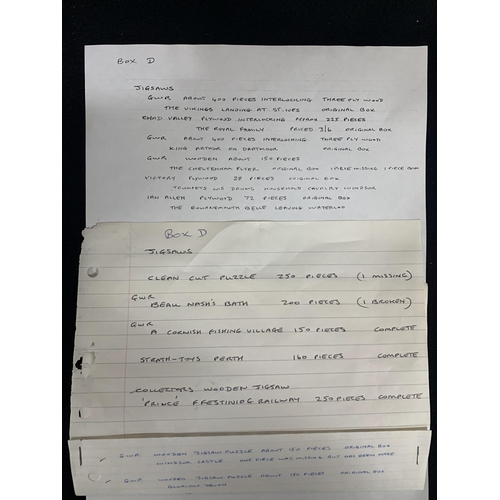 BOX D
JIGSAWS
GWR ABOUT 400 PIECES INTERLOCKING THREE PLY WOOD
THE VIKINGS LANDING AT ST. IVES ORIGINAL BOX
CHAD VALLEY PLYWOOD INTERLOCKING APPROX. 225 PIECES
THE ROYAL FAMILY PRICED 3/6 ORIGINAL BOX
GWR ABOUT 400 PIECES INTERLOCKING THREE PLY WOOD
KING ARTHUR ON DARTMOOR ORIGINAL BOX
GWR WOODEN ABOUT 150 PIECES
THE CHELTENHAM FLYER ORIGINAL BOX 1 PIECE MISSING 1 PIECE BOX
VICTORY PLYWOOD 28 PIECES ORIGINAL BOX
TRUMPETS AND DRUMS HOUSEHOLD CAVALRY WINDSOR
IAN ALLEN PLYWOOD 72 PIECES ORIGINAL BOX
THE BOURNEMOUTH BELLE LEAVING WATERLOO
BOX D
JIGSAWS
CLEAN CUT PUZZLE 250 PIECES (1 MISSING)
GWR
BEAU NASH'S BATH 200 PIECES (1 BROKEN)
GWR
A CORNISH FISHING VILLAGE 150 PIECES COMPLETE
STRATH-TOYS PERTH 160 PIECES COMPLETE
COLLECTORS WOODEN JIGSAW
'PRINCE' FFESTINIOG RAILWAY 250 PIECES COMPLETE
GWR WOODEN JIGSAW PUZZLE ABOUT 150 PIECES ORIGINAL BOX
WINDSOR CASTLE ONE PIECE WAS MISSING BUT HAS BEEN MADE
GWR WOODEN JIGSAW PUZZLE ABOUT 150 PIECES ORIGINAL BOX
GLORIOUS DEVON